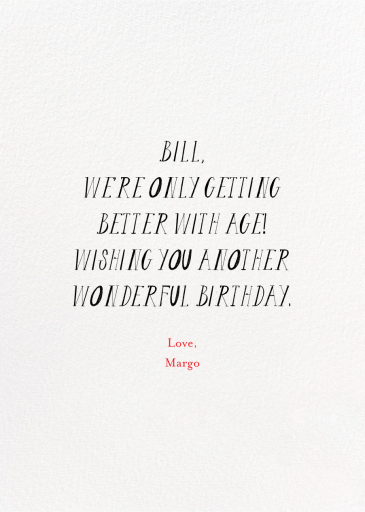 BILL,
WE'RE ONLY GETTING
BETTER WITH AGE!
WISHING YOU ANOTHER
WONDERFUL BIRTHDAY.
Love,
Margo